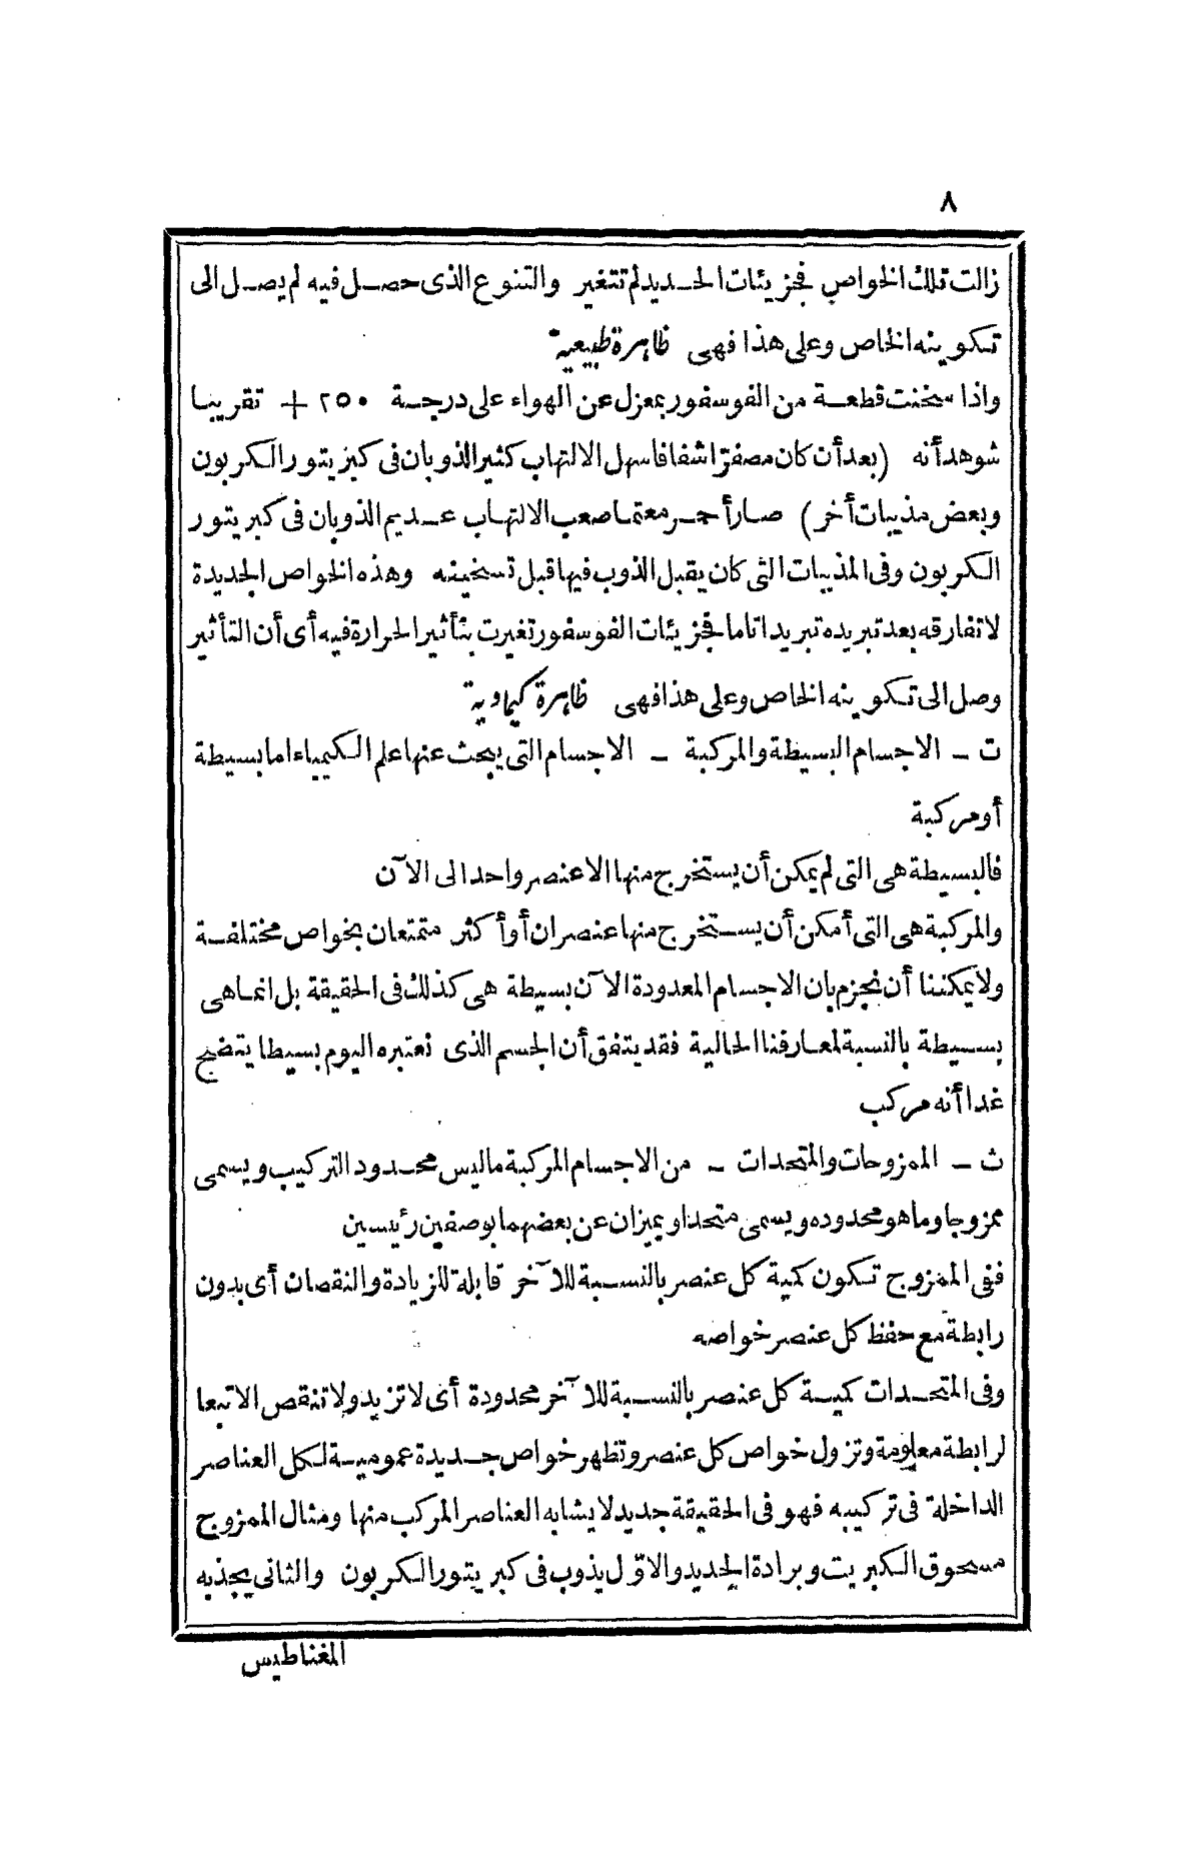 ٨
زالت تلك الخواص فجزيئات الحديد لم تتغير والتنوع الذى حصل فيه لم يصل الى
تكوينه الخاص وعلى هذا فهى ظاهرة طبيعية
واذا سخنت قطعة من الفوسفور بمعزل عن الهواء على درجة ٢٥٠ + تقريبا
شوهد أنه (بعد أن كان مصفرّا شفافا سهل الالتهاب كثير الذوبان فى كبريتور الكربون
وبعض مذيبات أخر) صار أحمر معتما صعب الالتهاب عديم الذوبان فى كبريتور
الكربون وفى المذيبات التى كان يقبل الذوب فيها قبل تسخينه وهذه الخواص الجديدة
لا تفارقه بعد تبريده تبريدا تاما فجزيئات الفوسفور تغيرت بتأثير الحرارة فيه أى أن التأثير
وصل الى تكوينه الخاص وعلى هذا فهى ظاهرة كيماوية
ت - الاجسام البسيطة والمركبة - الاجسام التى يبحث عنها علم الكيمياء اما بسيطة
أو مركبة
فالبسيطة هى التى لم يمكن أن يستخرج منها الا عنصر واحد الى الآن
والمركبة هى التى أمكن أن يستخرج منها عنصران أو أكثر متمتعان بخواص مختلفة
ولا يمكننا أن نجزم بان الاجسام المعدودة الآن بسيطة هى كذلك فى الحقيقة بل انما هى
بسيطة بالنسبة لمعارفنا الحالية فقد يتفق أن الجسم الذى نعتبره اليوم بسيطا يتضح
غدا أنه مركب
ث - الممزوجات والمتحدات - من الاجسام المركبة ما ليس محدود التركيب ويسمى
ممزوجا وما هو محدوده ويسمى متحدا ويميزان عن بعضهما بوصفين رئيسين
ففى الممزوج تكون كمية كل عنصر بالنسبة للآخر قابلة للزيادة والنقصان أى بدون
رابطة مع حفظ كل عنصر خواصه
وفى المتحدات كمية كل عنصر بالنسبة للآخر محدودة أى لا تزيد ولا تنقص الا تبعا
لرابطة معلومة وتزول خواص كل عنصر وتظهر خواص جديدة عمومية لكل العناصر
الداخلة فى تركيبه فهو فى الحقيقة جديد لا يشابه العناصر المركب منها ومثال الممزوج
مسحوق الكبريت وبرادة الحديد والاوّل يذوب فى كبريتور الكربون والثانى يجذبه
المغناطيس